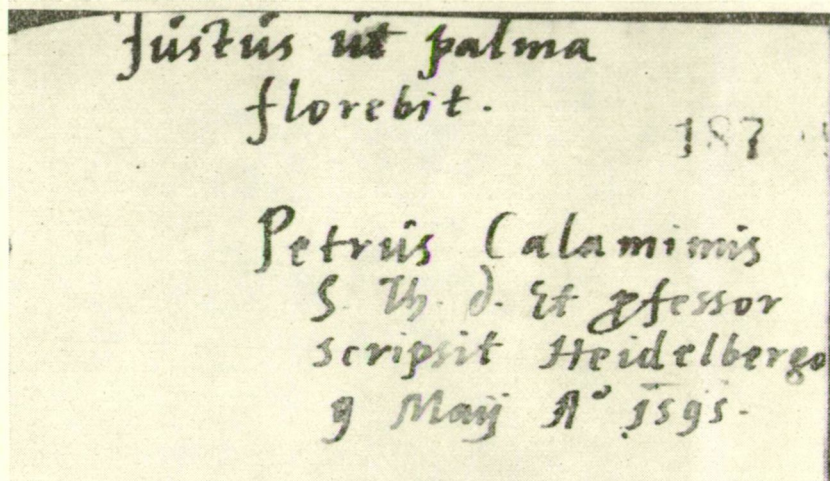 Justus ut palma
florebit.
187
Petrus Calaminus
S. Th. d. Et ꝓfessor
scripsit Heidelbergę
9 Maij A° 1595.